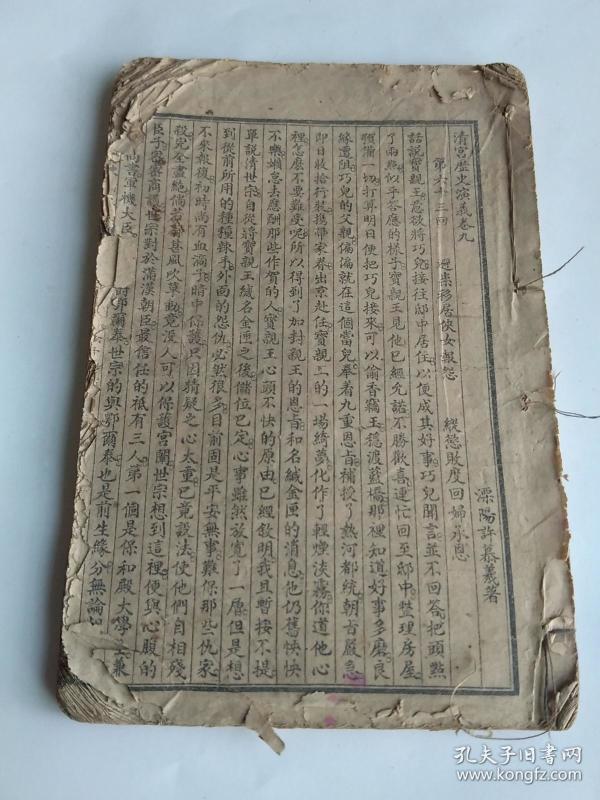 清宮歷史演義卷九
溧陽許慕羲著
第六十三回 避柴移居俠女報怨 縱慾敗度回婦承恩
話說寶親王急欲將巧兒接往邸中居住以便成其好事巧兒聞言並不回答把頭點
了兩點似乎答應的樣子寶親王見他已經允諾不勝歡喜連忙回至邸中整理房屋
預備一切打算明日便把巧兒接來可以偷香竊玉穩渡藍橋那裡知道好事多磨良
緣遭阻巧兒的父親偏偏就在這個當兒奉着九重恩旨補授了熱河都統朝旨嚴急
即日收拾行裝攜帶家眷出京赴任寶親王的一場綺夢化作了輕煙淡霧你道他心
裡怎麼不要難受呢所以得到了加封親王的恩旨和名緘金匣的消息他仍舊怏怏
不樂嬾怠去應酬那些作賀的人寶親王心頭不快的原由已經敘明我且暫按不提
單說清世宗自從將寶親王緘名金匣之後儲位已定心事雖然放寬了一層但是想
到從前所用的種種辣手外面的怨仇必然很多目前固是平安無事難保那些仇家
不來報復初時尚有血滴子時中保護只因猜疑之心太重已竟設法使他們自相殘
殺完全盡絕倘若有甚風吹草動竟沒人可以保護宮闈世宗想到這裡便與心腹的
臣子密密商議世宗對於滿漢朝臣最信任的祗有三人第一個是保和殿大學士兼
尚書軍機大臣
鄂爾泰世宗的與鄂爾泰也是前生緣分無論如
孔夫子旧书网
www.kongfz.com